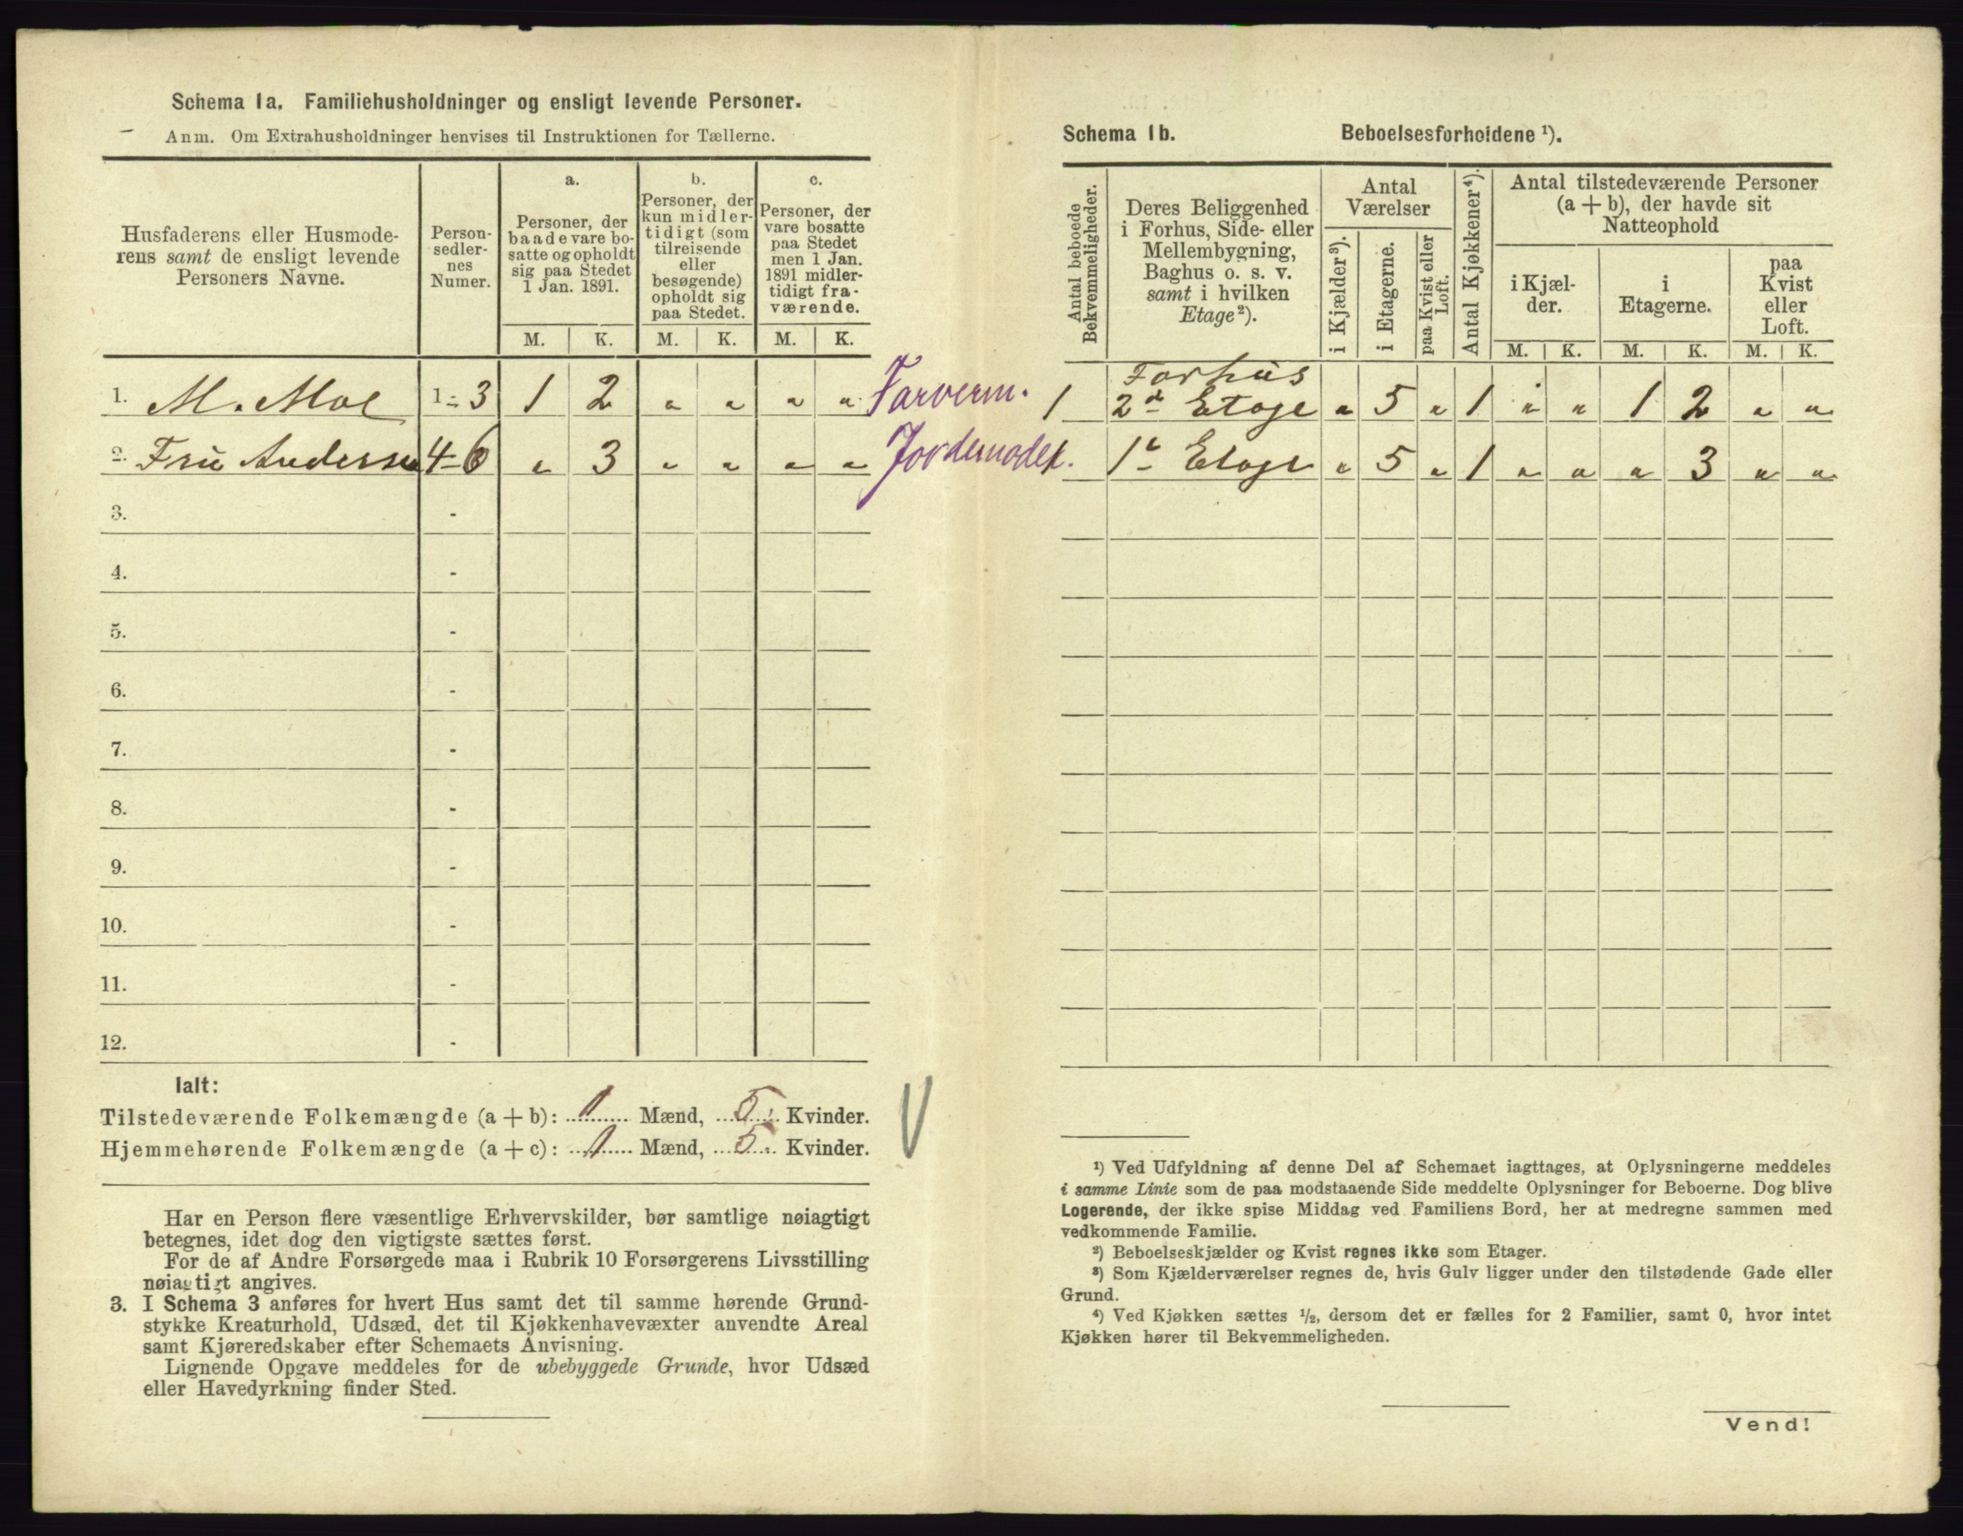 Schema 1a. Familiehusholdninger og ensligt levende Personer.
Anm. Om Extrahusholdninger henvises til Instruktionen for Tællerne.
Husfaderens eller Husmode-
rens samt de ensligt levende
Personers Navne.
Person-
sedler-
nes
Numer.
a.
Personer, der
baade vare bo-
satte og opholdt
sig paa Stedet
1 Jan. 1891.
b.
Personer, der
kun midler-
tidigt (som
tilreisende
eller
besøgende)
opholdt sig
paa Stedet.
c.
Personer, der
vare bosatte
paa Stedet
men 1 Jan.
1891 midler-
tidigt fra-
værende.
M. K. M. K. M. K.
1. M. Moe 1 - 3 1 2 " " " " Farverm.
2. Fru Andersen 4-6 " 3 " " " " Jordemoder.
3. -
4. -
5. -
6. -
7. -
8. -
9. -
10. -
11. -
12. -
Ialt:
Tilstedeværende Folkemængde (a + b): 1 Mænd, 5 Kvinder.
Hjemmehørende Folkemængde (a + c): 1 Mænd, 5 Kvinder.
Har en Person flere væsentlige Erhvervskilder, bør samtlige nøiagtigt
betegnes, idet dog den vigtigste sættes først.
For de af Andre Forsørgede maa i Rubrik 10 Forsørgerens Livsstilling
nøiagtigt angives.
3. I Schema 3 anføres for hvert Hus samt det til samme hørende Grund-
stykke Kreaturhold, Udsæd, det til Kjøkkenhavevæxter anvendte Areal
samt Kjøreredskaber efter Schemaets Anvisning.
Lignende Opgave meddeles for de ubebyggede Grunde, hvor Udsæd
eller Havedyrkning finder Sted.
Schema 1b. Beboelsesforholdene ¹).
Antal beboede
Bekvemmeligheder.
Deres Beliggenhed
i Forhus, Side- eller
Mellembygning,
Baghus o. s. v.
samt i hvilken
Etage²).
Antal
Værelser
i Kjælder³).
i Etagerne.
paa Kvist eller
Loft.
Antal Kjøkkener⁴).
Antal tilstedeværende Personer
(a + b), der havde sit
Natteophold
i Kjæl-
der.
i
Etagerne.
paa
Kvist
eller
Loft.
M. K. M. K. M. K.
Forhus
1 2d Etage " 5 " 1 " " 1 2 " "
1 1e Etage " 5 " 1 " " " 3 " "
¹) Ved Udfyldning af denne Del af Schemaet iagttages, at Oplysningerne meddeles
i samme Linie som de paa modstaaende Side meddelte Oplysninger for Beboerne. Dog blive
Logerende, der ikke spise Middag ved Familiens Bord, her at medregne sammen med
vedkommende Familie.
²) Beboelseskjælder og Kvist regnes ikke som Etager.
³) Som Kjælderværelser regnes de, hvis Gulv ligger under den tilstødende Gade eller
Grund.
⁴) Ved Kjøkken sættes ½, dersom det er fælles for 2 Familier, samt 0, hvor intet
Kjøkken hører til Bekvemmeligheden.
Vend!